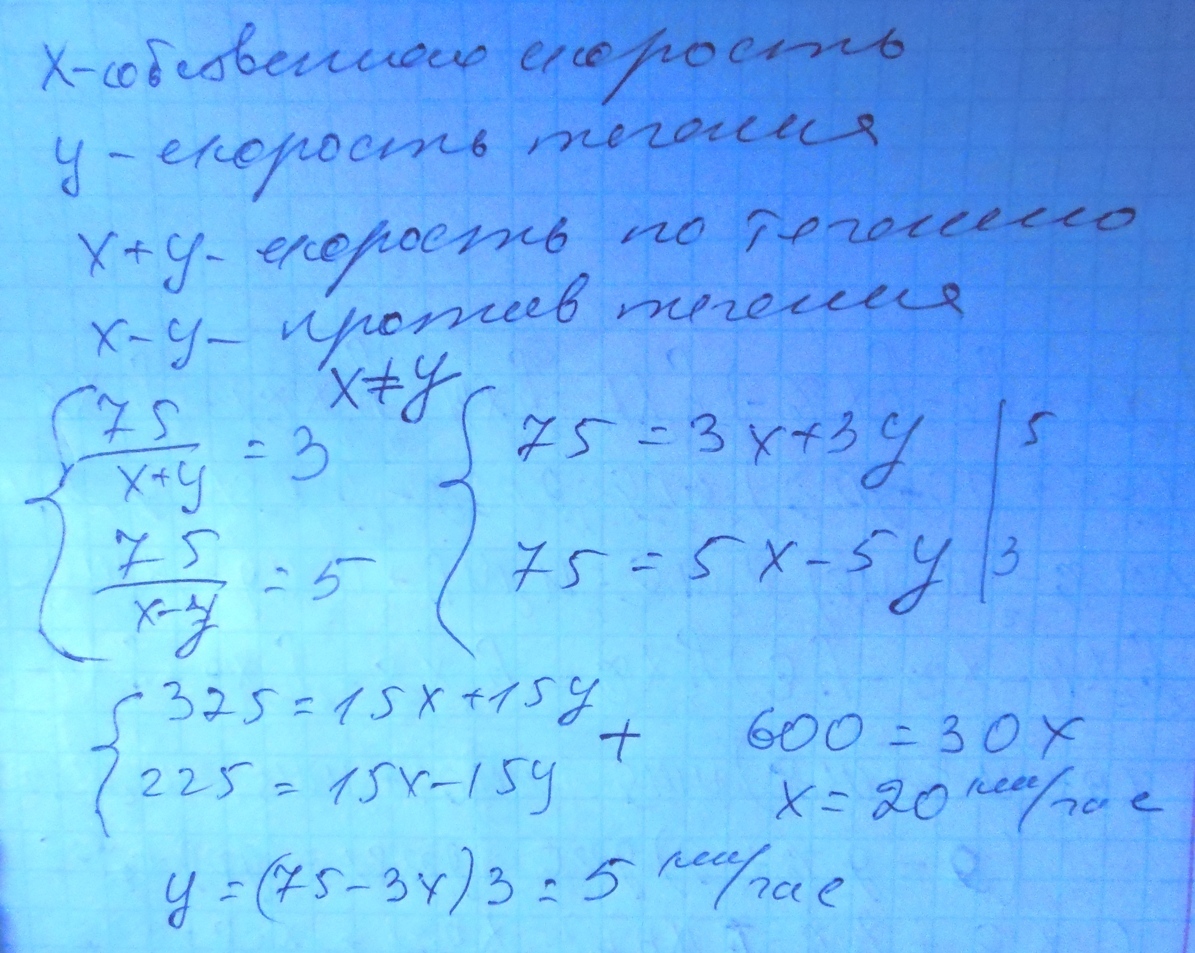 x - собственная скорость
y - скорость течения
x+y - скорость по течению
x-y - против течения
x≠y
75/(x+y) = 3
75 = 3x+3y | 5
75/(x-y) = 5
75 = 5x-5y | 3
325 = 15x+15y
+
600 = 30x
225 = 15x-15y
x = 20 км/час
y = (75-3x)3 = 5 км/час